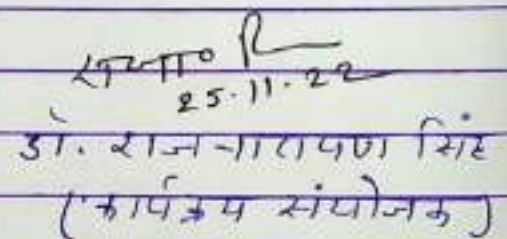 25.11.22
डॉ. राजनारायण सिंह
(कार्यक्रम संयोजक)